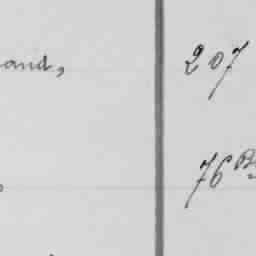 and, 207
76